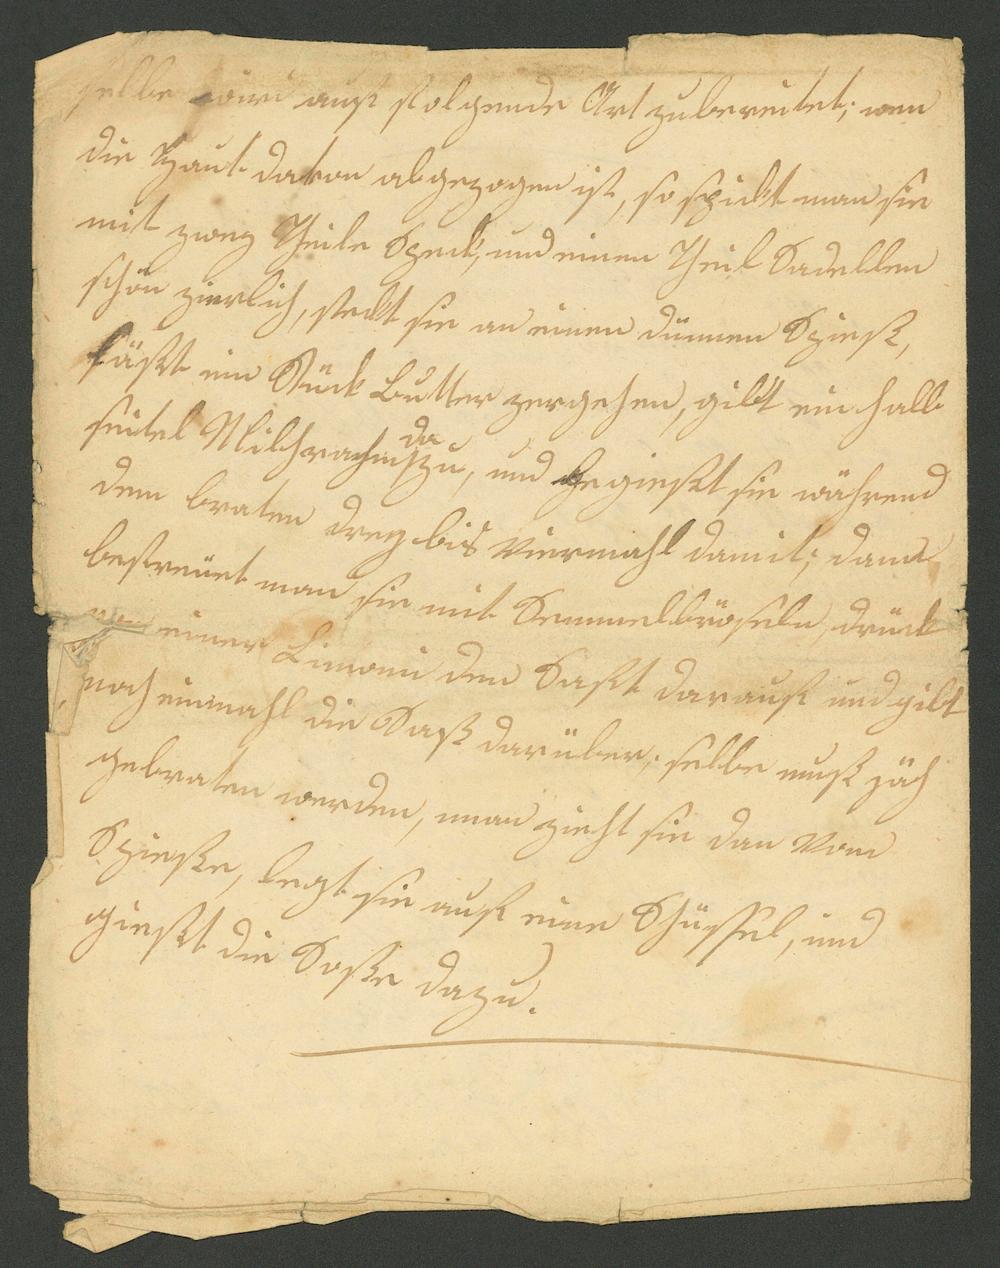 selbe wird auf folgende Art zubereitet; wen
die Haut davon abgezogen ist, so spickt man sie
mit zwey Theile Speck, und einen Theil Sadellen
schön zierlich, steckt sie an einen dünnen Spieß,
läßt ein Stück Butter zergehen, gibt ein halb
seitel Milchrahm dazu, und begießt sie während
dem braten drey bis viermahl damit; dann
bestreuet man sie mit Semmelbröseln, drückt
von einer Limoni den Saft darauf und gibt
noch einmahl die Soß darüber; selbe muß jäh
gebraten werden, man zieht sie dan vom
Spieße, legt sie auf eine Schüssel, und
gießt die Soße dazu.